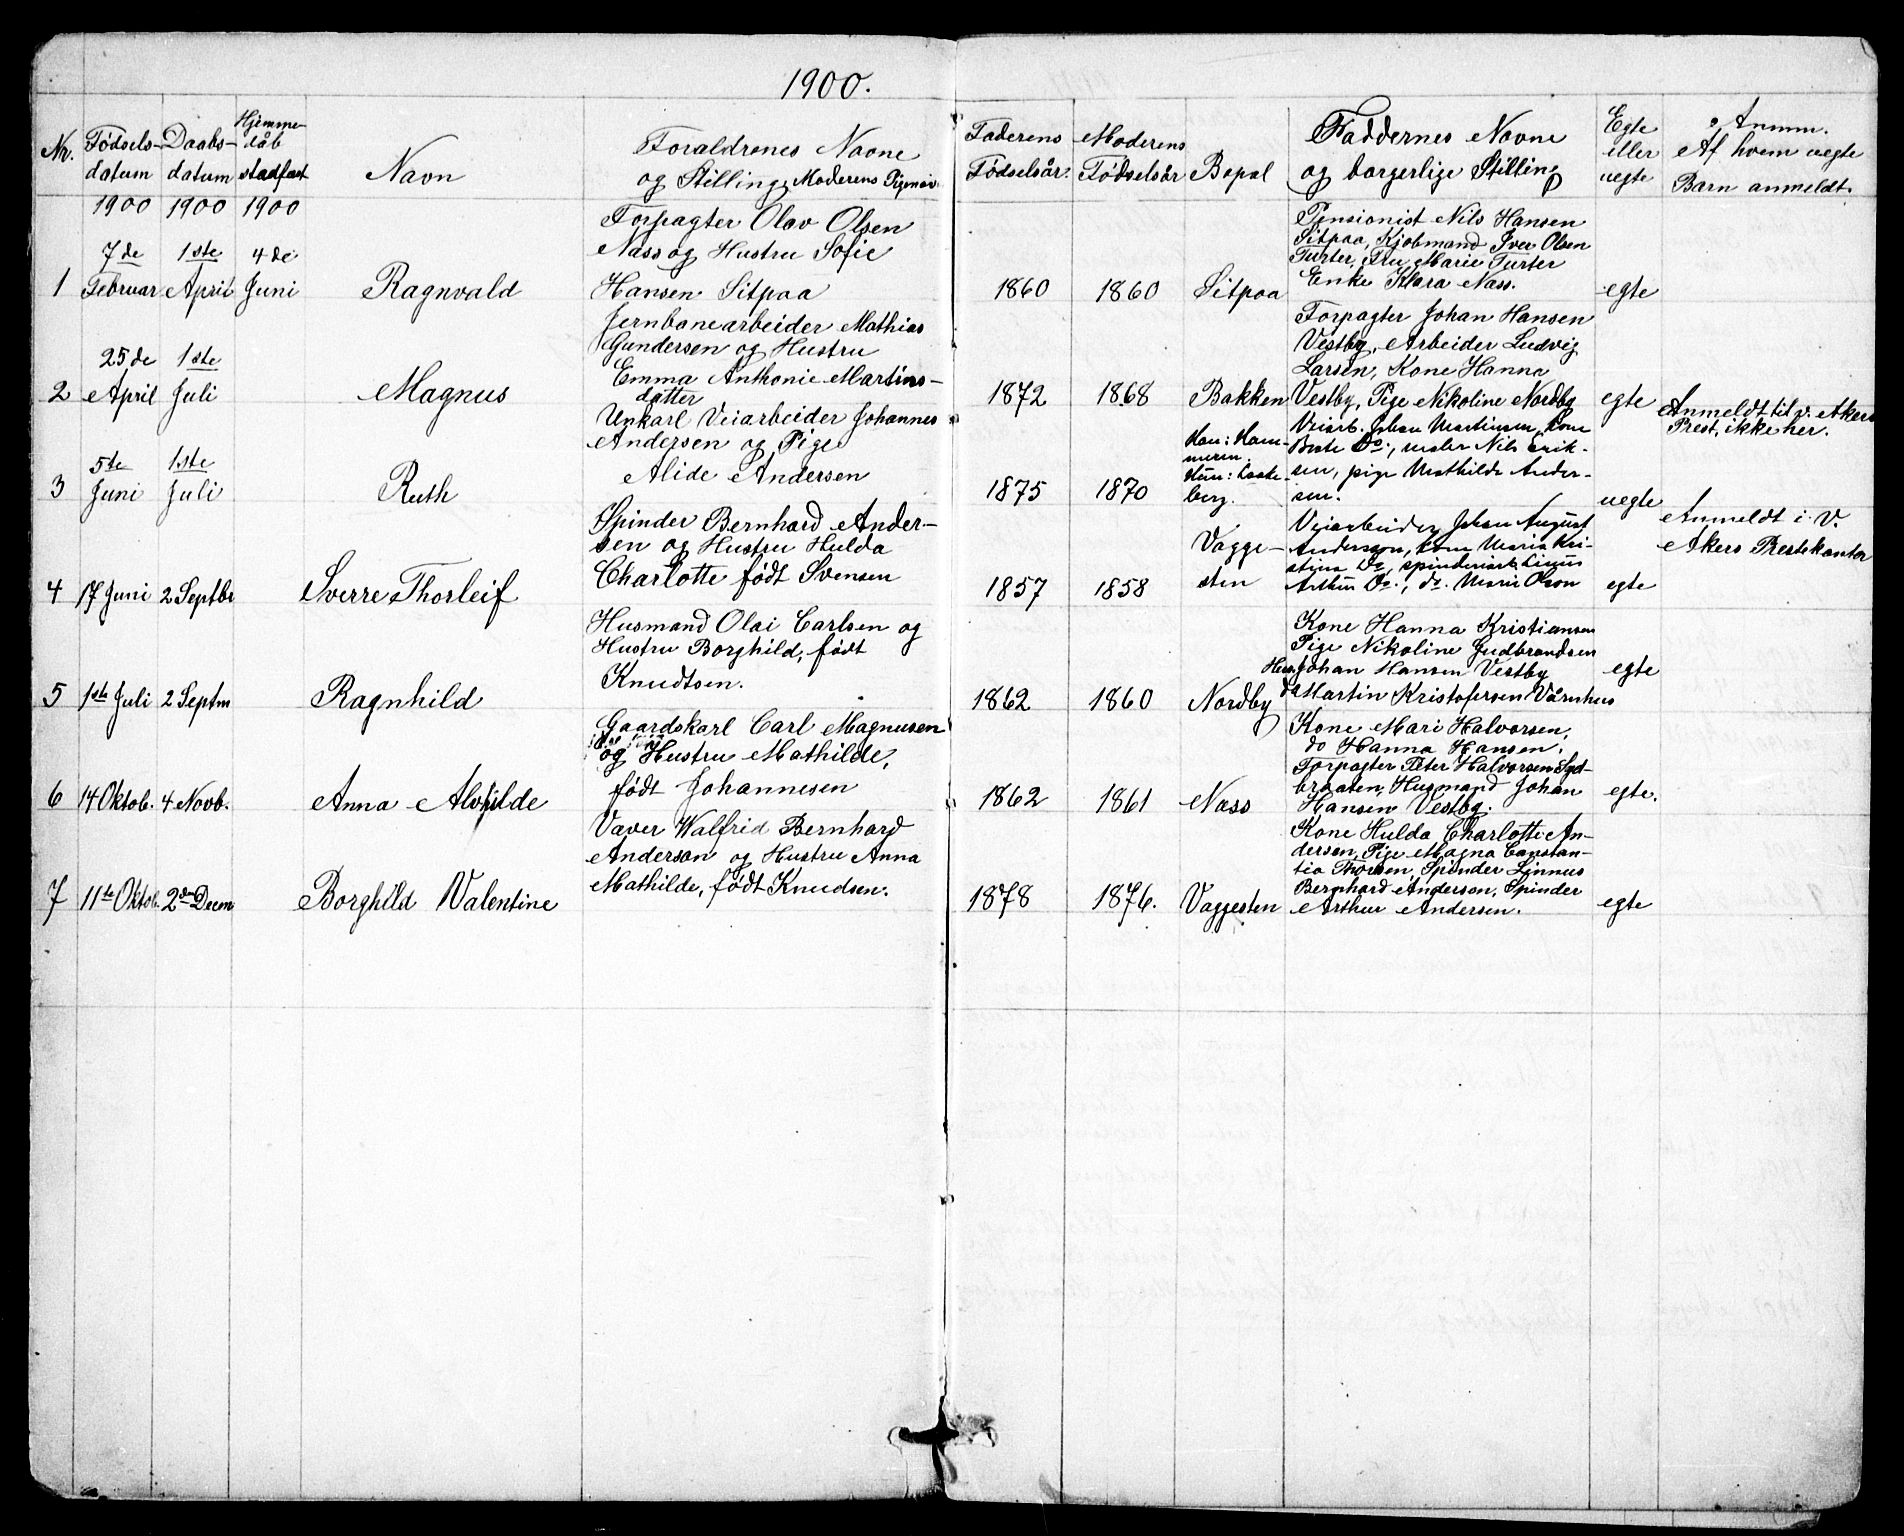 1900.
Nr. Fødsels- datum Daabs- datum Hjemme- dåb stadfæst Navn Forældrenes Navne og Stilling, Moderens Pigenavn Faderens Fødselsår. Moderens Fødselsår Bopæl Faddernes Navne og borgerlige Stilling Egte eller uegte Anmm. Af hvem uegte Barn anmeldt.
1900 1900 1900
1 7de Februar 1ste April 4de Juni Ragnvald
Forpagter Olav Olsen
Næss og Hustru Sofie
Hansen Sitpaa
1860 1860 Sitpaa
Pensionist Nils Hansen
Sitpaa, Kjøbmand Iver Olsen
Turter, Fru Marie Turter
Enke Klara Næss.
egte
2 25de April 1ste Juli Magnus
Jernbanearbeider Mathias
Gundersen og Hustru
Emma Anthonie Martins-
datter
1872 1868 Bakken
Forpagter Johan Hansen
Vestby, Arbeider Ludvig
Larsen, Kone Hanna
Vestby, Pige Nikoline Nordby
egte
Anmeldt til v. Akers
Prest, ikke her.
3 5te Juni 1ste Juli Ruth
Unkarl Veiarbeider Johannes
Andersen og Pige
Alide Andersen
1875 1870
Han: Ham-
meren.
Hun:
berg.
Veiarb. Johan Martinsen, Kone
Beate Do;, maler Nils Erik-
sen, pige Mathilde Ander-
sen.
uegte
Anmeldt i V.
Akers Prestekontor
4 17 Juni 2 Septbr Sverre Thorleif
Spinder Bernhard Ander-
sen og Hustru Hulda
Charlotte født Svensen
1857 1858
Vagge-
sten
Veiarbeider Johan August
Anderssen, kone Maria Kri-
stina Do, spinderiarb. Linus
Arthur Do., do. Maria Olson
egte
5 1ste Juli 2 Septm Ragnhild
Husmand Olai Carlsen og
Hustru Borghild, født
Knudtsen.
1862 1860 Nordby
Kone Hanna Kristiansen
Pige Nikoline Gudbrandsen
Hus. Johan Hansen Vestby
do Martin Kristofersen Vårnhus
egte
6 14 Oktob. 4 Novb. Anna Alvhilde
Gaardskarl Carl Magnusen
og Hustru Mathilde,
født Johannesen
1862 1861 Næss
Kone Mari Halvorsen,
do Hanna Hansen,
Forpagter Peter Halvorsen Syd-
braaten, Husmand Johan
Hansen Vestby.
egte.
7 11te Oktob. 2den Decm Borghild Valentine
Væver Walfrid Bernhard
Anderson og Hustru Anna
Mathilde, født Knudsen.
1878 1876. Vaggesten
Kone Hulda Charlotte An-
dersen, Pige Magna Constan-
tia Thorsen, Spinder Linnus
Bernhard Anderson, Spinder
Arthur Andersen.
egte